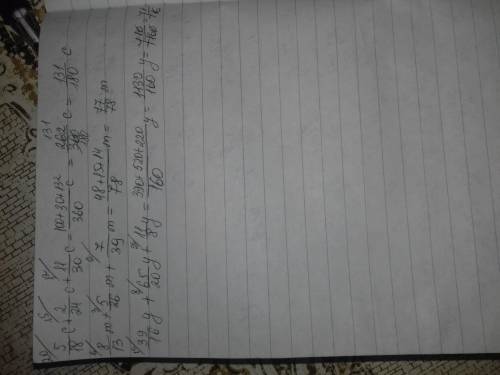 5/18 c + 2/24 c + 11/30 c = 100+30+132/360 c = 262/360 c = 131/180 c
8/13 m + 5/26 m + 7/39 m = 48+15+14/78 m = 77/78 m
39/16 y + 65/20 y + 11/8 y = 390+520+220/160 y = 1130/160 y =